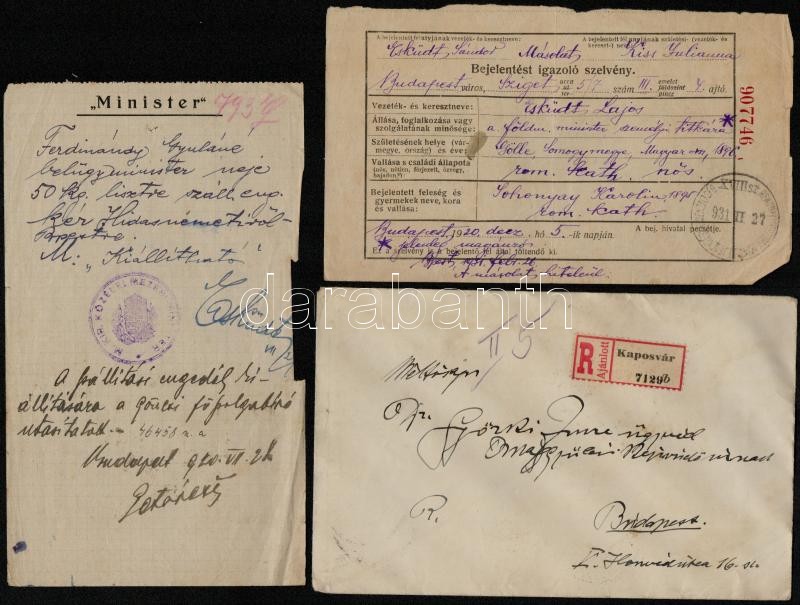 „Minister"
Ferdinándy Gyuláné
belügyminister neje
50 Kg. lisztre száll. eng.
kér Hidasnémetiről
Pestre.
M: „Kiállítható"
M. KIR. KÖZÉLELMEZÉSI
A szállítási engedél ki-
állítására a gönczi főszolgabíró
utasítatott.
Budapest 920. VI. 2
A bejelentett fél atyjának vezeték- és keresztneve:
A bejelentett fél anyjának születési- (vezeték- és kereszt-) neve
Esküdt Sándor Másolat Kiss Julianna
Bejelentést igazoló szelvény.
Budapest város, Sziget utca 5/7 szám III. emelet földszint pince 4. ajtó.
Vezeték- és keresztneve: Esküdt Lajos
Állása, foglalkozása vagy szolgálatának minősége: a földm. minister személyi titkára *
Születésének helye (vármegye, ország) és éve: Gölle, Somogymegye, Magyar 1896
Vallása s családi állapota (nős, nőtlen, férjezett, özvegy, hajadon?) rom. kath. nős.
Bejelentett feleség és gyermekek neve, kora és vallása: Sohonyay Karolin 1895
rom. kath.
Budapest, 1920 decz. hó 5.-ik napján.
A bej. hivatal pecsétje.
* jelenleg magánzó
Ez a szelvény is a bejelentő fél által töltendő ki.
A másolat hiteléül.
907746
931 VI 27
II 5
R
Ajánlott
Kaposvár
7129b
Dr. Görki Imre ügyvéd
R.
Budapest.
V. Honvéd utca 16. sz.
darabanth